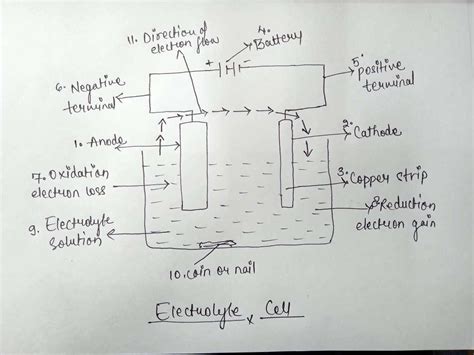 11. Direction of
electron flow
4.
Battery
+ -
6. Negative
terminal
5.
positive
terminal
1. Anode
2.
Cathode
7. Oxidation
electron loss
3. Copper strip
8 Reduction
electron gain
9. Electrolyte
solution
10. Coin or nail
Electrolyte Cell